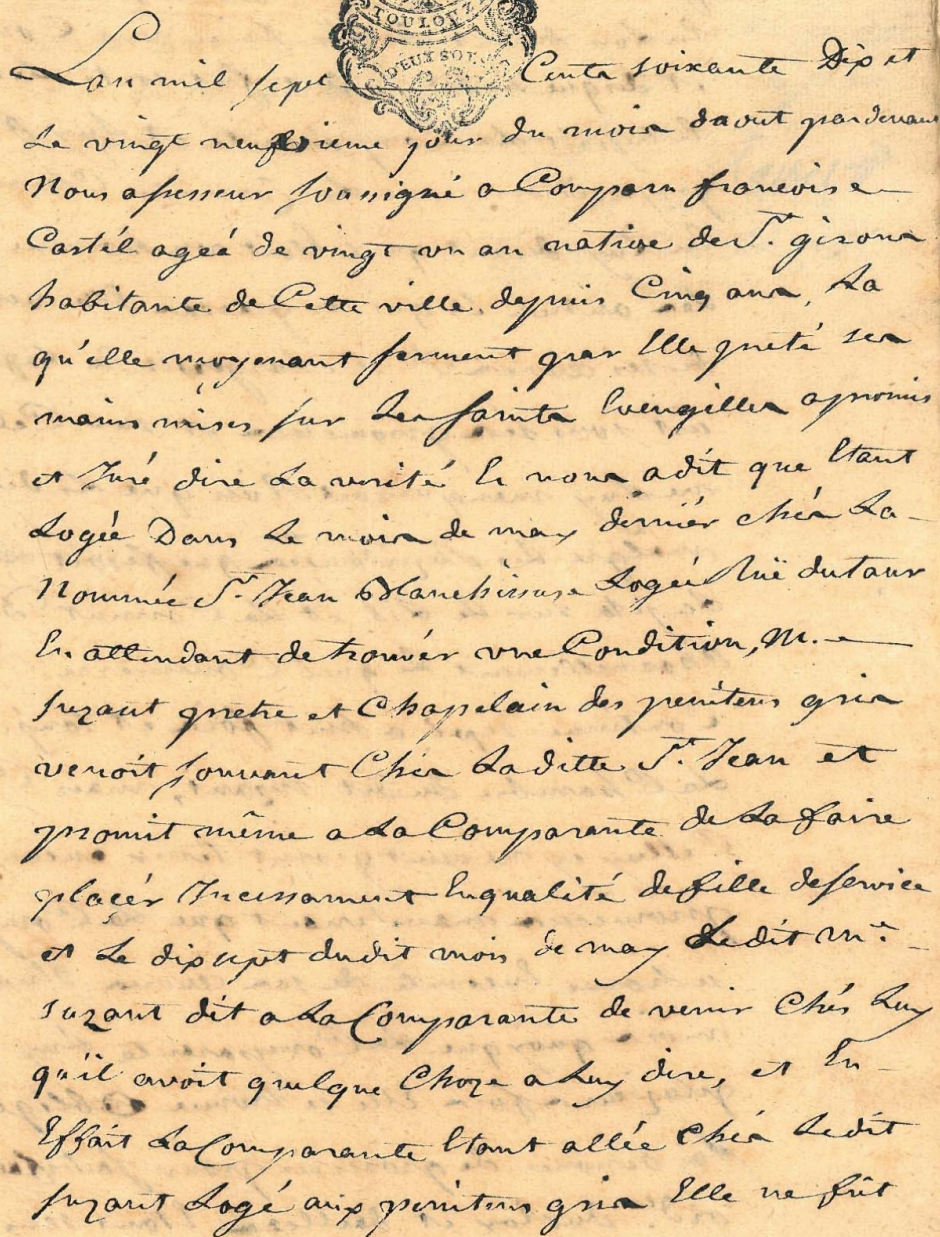 TOULOUZE
DEUX SOLS
Lan mil sept Cents soixante Dix et
Le vingt neufvieme jour du mois daout pardevant
Nous assesseur soussigné a Comparu francoise
Castél ageé de vingt un an native de St. girons
habitante de Cette ville depuis Cinq ans, La
qu'elle moyenant serment par Elle preté ses
mains mises sur Les saints Evengilles apromis
et Juré dire La verité Et nous adit que Etant
Logée Dans Le mois de may derniér chés La
Nommée St. Jean Blanchisseuse Logeé Ruë dutaur
En attendant detrouvér une Condition, M.
suzant pretre et Chapelain des penitens gris
venoit souvant Chés Laditte St. Jean et
promit même a La Comparante de La faire
plaçér Incessament Enqualité defille deservice
et Le dix sept dudit mois de may Ledit mr.
suzant dit a La Comparante de venir Chés Luy
qu'il avoit quelque Choze a Luy dire, et En
Effait La Comparante Etant allée chés Ledit
suzant Logé aux penitens gris Elle ne fut